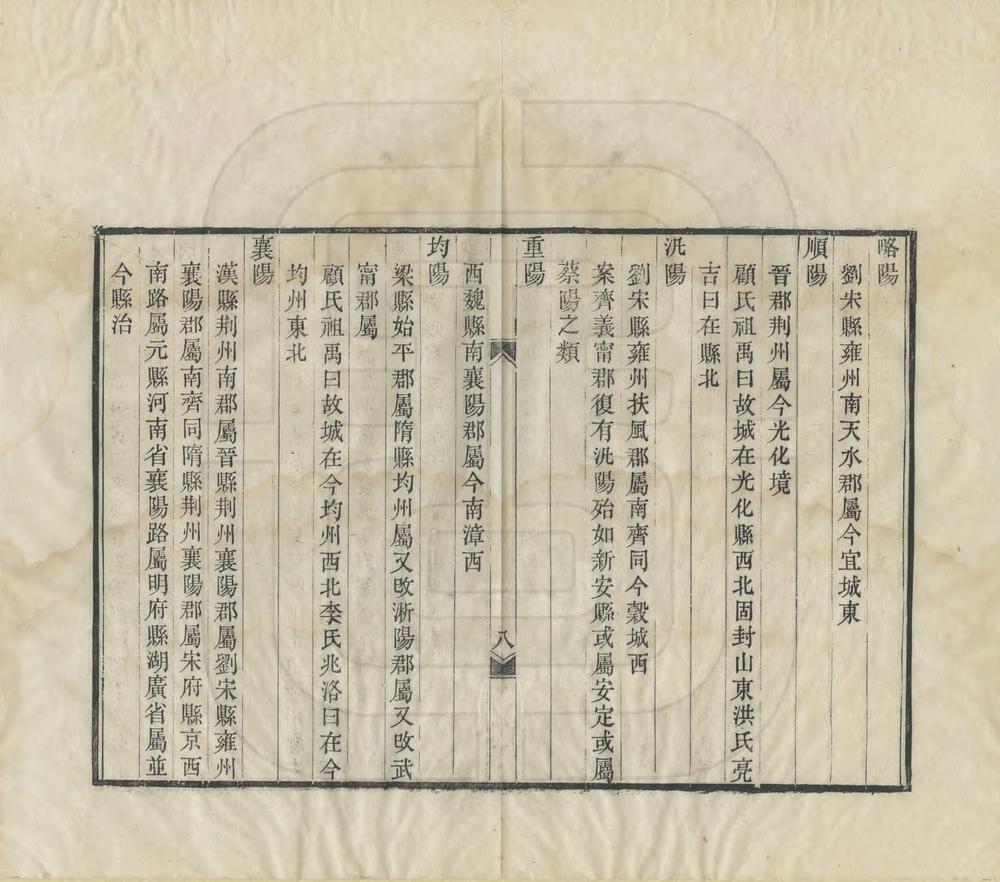 略陽
劉宋縣雍州南天水郡屬今宜城東
順陽
晉郡荆州屬今光化境
顧氏祖禹曰故城在光化縣西北固封山東洪氏亮
吉曰在縣北
汎陽
劉宋縣雍州扶風郡屬南齊同今穀城西
案齊義甯郡復有汎陽殆如新安縣或屬安定或屬
蔡陽之類
重陽
西魏縣南襄陽郡屬今南漳西
八
均陽
梁縣始平郡屬隋縣均州屬又改淅陽郡屬又改武
甯郡屬
顧氏祖禹曰故城在今均州西北李氏兆洛曰在今
均州東北
襄陽
漢縣荆州南郡屬晉縣荆州襄陽郡屬劉宋縣雍州
襄陽郡屬南齊同隋縣荆州襄陽郡屬宋府縣京西
南路屬元縣河南省襄陽路屬明府縣湖廣省屬並
今縣治